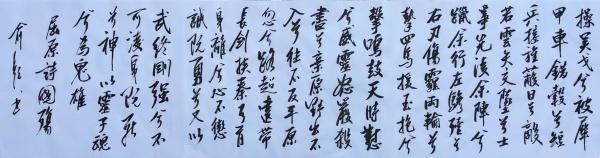 操吴戈兮被犀
甲车错毂兮短
兵接旌蔽日兮敌
若云矢交坠兮士
争先凌余阵兮
躐余行左骖殪兮
右刃伤霾两轮兮
絷四马援玉枹兮
击鸣鼓天时怼
兮威灵怒严杀
尽兮弃原野出不
入兮往不反平原
忽兮路超远带
长剑兮挟秦弓首
身离兮心不惩
诚既勇兮又以
武终刚强兮不
可凌身既死
兮神以灵子魂
魄兮为鬼雄
屈原诗国殇